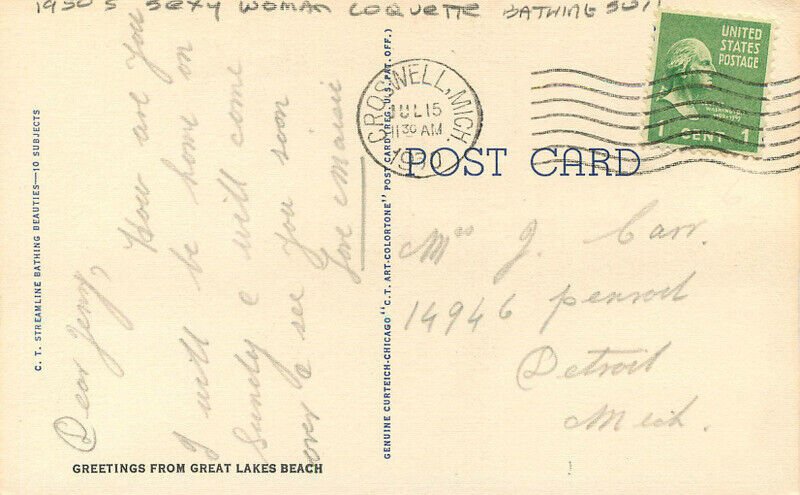 1950'S SEXY WOMAN COQUETTE BATHING SUIT
UNITED
STATES
POSTAGE
WASHINGTON
1 CENT 1
CROSWELL, MICH.
JUL 15
11 30 AM
POST CARD
C. T. STREAMLINE BATHING BEAUTIES—10 SUBJECTS
Dear Jeny,
How are you
I will be home on
Sundy & will come
over & see you soon
love Maisie
GENUINE CURTEICH-CHICAGO "C. T. ART-COLORTONE" POST CARD (REG. U.S. PAT. OFF.)
Mrs J. Carr.
14946 penrod
Detroit
Mich.
GREETINGS FROM GREAT LAKES BEACH